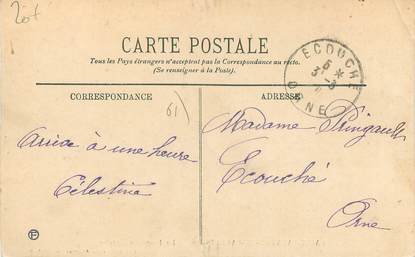 20f
CARTE POSTALE
Tous les Pays étrangers n'acceptent pas la Correspondance au recto.
(Se renseigner à la Poste).
ECOUCHÉ
ORNE
CORRESPONDANCE
ADRESSE
61)
Arrive à une heure
Célestina
Madame
Ecouché
Orne